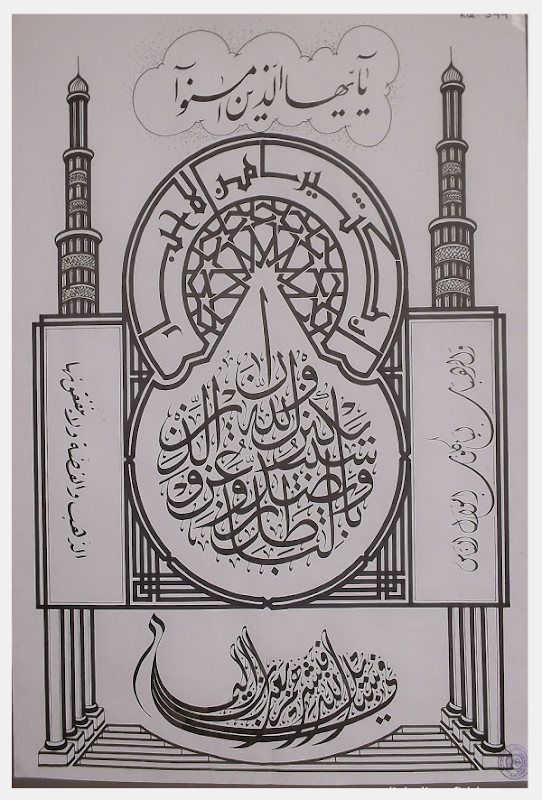 يٰٓاَيُّهَا الَّذِينَ اٰمَنُوٓا
ان كثيرا من الاحبار
والرهبان ليأكلون اموال الناس
بالباطل ويصدون عن سبيل الله والذين يكنزون
الذهب والفضة ولا ينفقونها
في سبيل الله فبشرهم بعذاب اليم